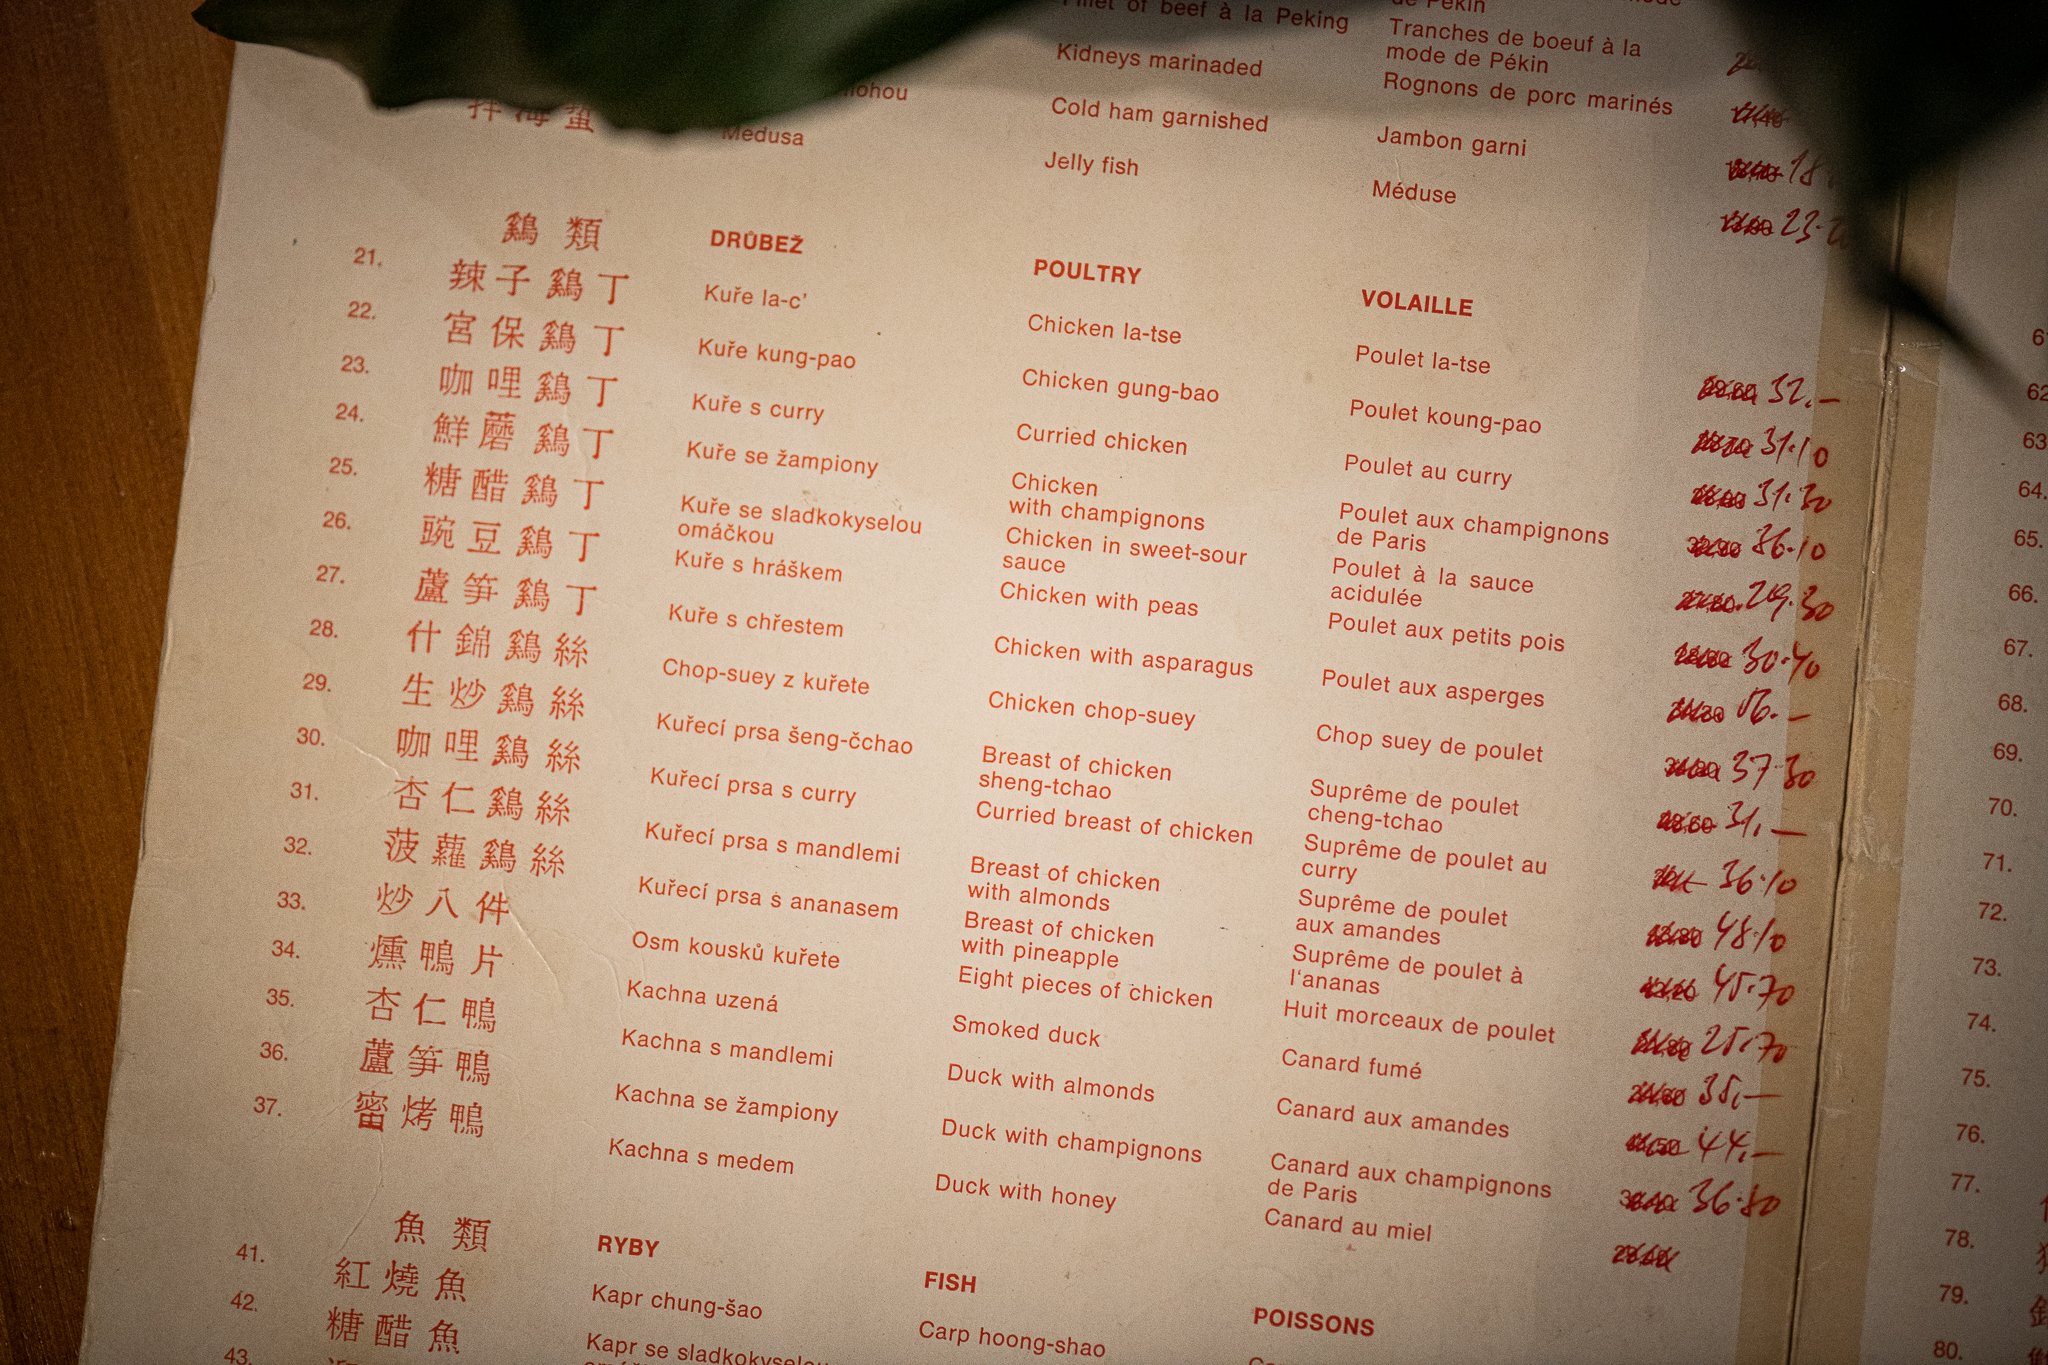 Fillet of beef à la Peking
de Pékin
Tranches de boeuf à la
mode de Pékin
Kidneys marinaded
Rognons de porc marinés
Cold ham garnished
Jambon garni
18
拌海蜇
Medusa
Jelly fish
Méduse
23.
鷄類
DRŮBEŽ
POULTRY
VOLAILLE
21.
辣子鷄丁
Kuře la-c’
Chicken la-tse
Poulet la-tse
32.–
22.
宮保鷄丁
Kuře kung-pao
Chicken gung-bao
Poulet koung-pao
31.10
23.
咖哩鷄丁
Kuře s curry
Curried chicken
Poulet au curry
31.30
24.
鮮蘑鷄丁
Kuře se žampiony
Chicken
with champignons
Poulet aux champignons
de Paris
36.10
25.
糖醋鷄丁
Kuře se sladkokyselou
omáčkou
Chicken in sweet-sour
sauce
Poulet à la sauce
acidulée
29.30
26.
豌豆鷄丁
Kuře s hráškem
Chicken with peas
Poulet aux petits pois
30.40
27.
蘆筍鷄丁
Kuře s chřestem
Chicken with asparagus
Poulet aux asperges
28.
什錦鷄絲
Chop-suey z kuřete
Chicken chop-suey
Chop suey de poulet
37.30
29.
生炒鷄絲
Kuřecí prsa šeng-čchao
Breast of chicken
sheng-tchao
Suprême de poulet
cheng-tchao
31,–
30.
咖哩鷄絲
Kuřecí prsa s curry
Curried breast of chicken
Suprême de poulet au
curry
36.10
31.
杏仁鷄絲
Kuřecí prsa s mandlemi
Breast of chicken
with almonds
Suprême de poulet
aux amandes
48.10
32.
菠蘿鷄絲
Kuřecí prsa s ananasem
Breast of chicken
with pineapple
Suprême de poulet à
l‘ananas
45.70
33.
炒八件
Osm kousků kuřete
Eight pieces of chicken
Huit morceaux de poulet
25.70
34.
燻鴨片
Kachna uzená
Smoked duck
Canard fumé
35,–
35.
杏仁鴨
Kachna s mandlemi
Duck with almonds
Canard aux amandes
44,–
36.
蘆筍鴨
Kachna se žampiony
Duck with champignons
Canard aux champignons
de Paris
36.80
37.
蜜烤鴨
Kachna s medem
Duck with honey
Canard au miel
魚類
RYBY
FISH
POISSONS
41.
紅燒魚
Kapr chung-šao
Carp hoong-shao
42.
糖醋魚
Kapr se sladkokyselou
43.
62
63
64.
65.
66.
67.
68.
69.
70.
71.
72.
73.
74.
75.
76.
77.
78.
79.
80.